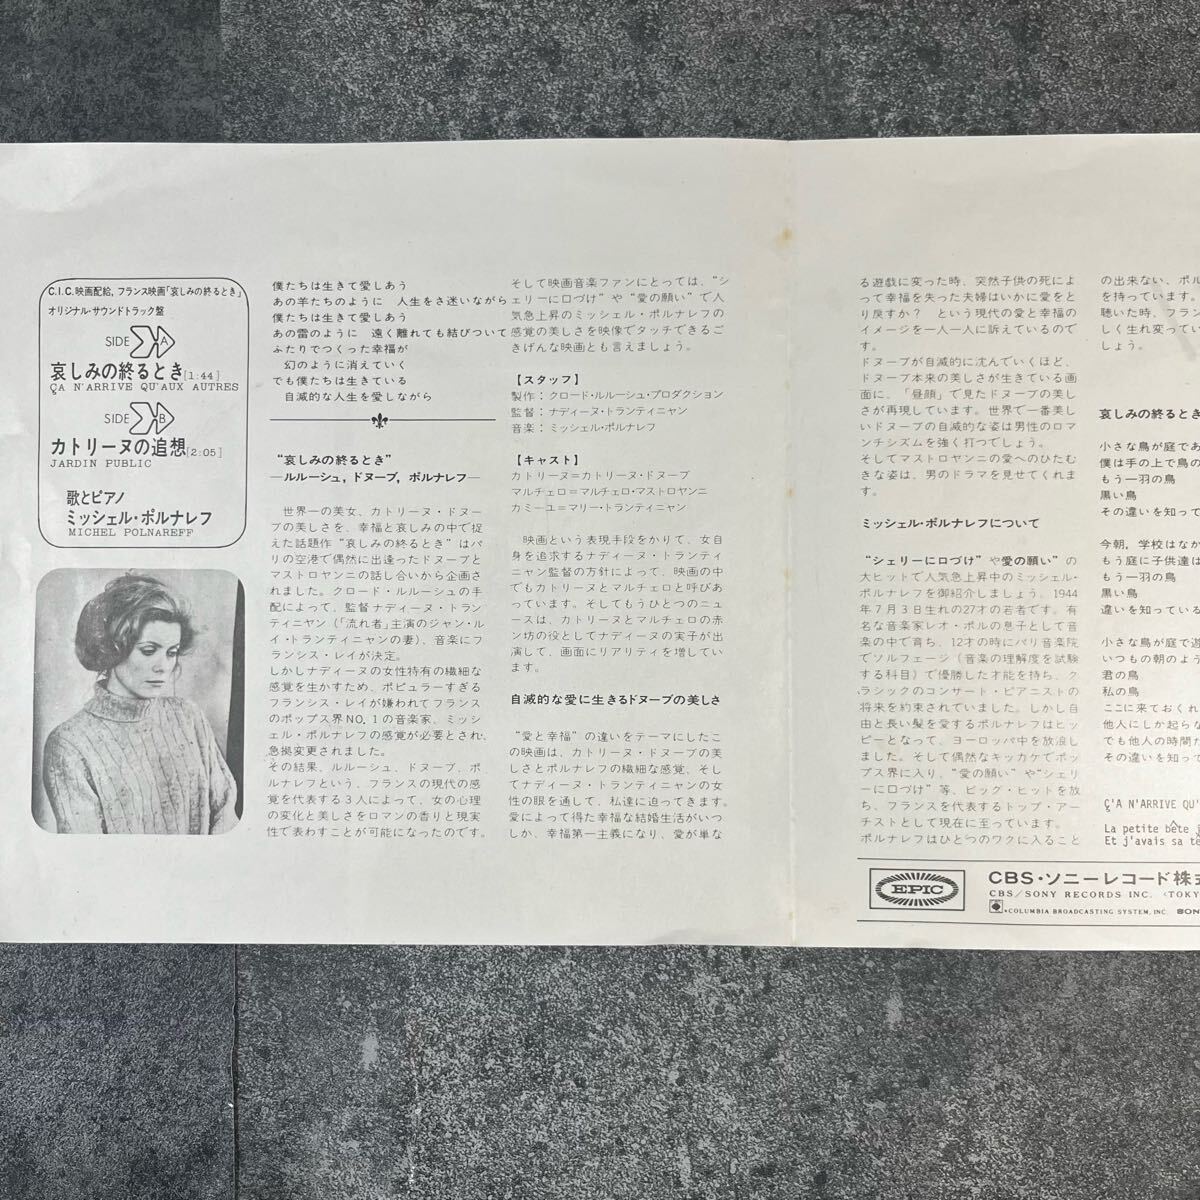 C.I.C.映画配給, フランス映画「哀しみの終るとき」
オリジナル・サウンドトラック盤
SIDE A
哀しみの終るとき[1:44]
ÇA N'ARRIVE QU'AUX AUTRES
SIDE B
カトリーヌの追想[2:05]
JARDIN PUBLIC
歌とピアノ
ミッシェル・ポルナレフ
MICHEL POLNAREFF
僕たちは生きて愛しあう
あの羊たちのように 人生をさ迷いながら
僕たちは生きて愛しあう
あの雷のように 遠く離れても結びついて
ふたりでつくった幸福が
幻のように消えていく
でも僕たちは生きている
自滅的な人生を愛しながら
“哀しみの終るとき”
—ルルーシュ, ドヌーブ, ポルナレフ—
世界一の美女、カトリーヌ・ドヌー
ブの美しさを、幸福と哀しみの中で捉
えた話題作“哀しみの終るとき”はパ
リの空港で偶然に出逢ったドヌーブと
マストロヤンニの話し合いから企画さ
れました。クロード・ルルーシュの手
配によって、監督ナディーヌ・トラン
ティニャン(「流れ者」主演のジャン・ル
イ・トランティニャンの妻)、音楽にフ
ランシス・レイが決定。
しかしナディーヌの女性特有の繊細な
感覚を生かすため、ポピュラーすぎる
フランシス・レイが嫌われてフランス
のポップス界NO.1の音楽家、ミッシ
ェル・ポルナレフの感覚が必要とされ、
急拠変更されました。
その結果、ルルーシュ、ドヌーブ、ポ
ルナレフという、フランスの現代の感
覚を代表する3人によって、女の心理
の変化と美しさをロマンの香りと現実
性で表わすことが可能になったのです。
そして映画音楽ファンにとっては、“シ
ェリーに口づけ”や“愛の願い”で人
気急上昇のミッシェル・ポルナレフの
感覚の美しさを映像でタッチできるご
きげんな映画とも言えましょう。
【スタッフ】
製作:クロード・ルルーシュ・プロダクション
監督:ナディーヌ・トランティニャン
音楽:ミッシェル・ポルナレフ
【キャスト】
カトリーヌ=カトリーヌ・ドヌーブ
マルチェロ=マルチェロ・マストロヤンニ
カミーユ=マリー・トランティニャン
映画という表現手段をかりて、女自
身を追求するナディーヌ・トランティ
ニャン監督の方針によって、映画の中
でもカトリーヌとマルチェロと呼びあ
っています。そしてもうひとつのニュ
ースは、カトリーヌとマルチェロの赤
ン坊の役としてナディーヌの実子が出
演して、画面にリアリティを増してい
ます。
自滅的な愛に生きるドヌーブの美しさ
“愛と幸福”の違いをテーマにしたこ
の映画は、カトリーヌ・ドヌーブの美
しさとポルナレフの繊細な感覚、そし
てナディーヌ・トランティニャンの女
性の眼を通して、私達に迫ってきます。
愛によって得た幸福な結婚生活がいつ
しか、幸福第一主義になり、愛が単な
る遊戯に変った時、突然子供の死によ
って幸福を失った夫婦はいかに愛をと
り戻すか? という現代の愛と幸福の
イメージを一人一人に訴えているので
す。
ドヌーブが自滅的に沈んでいくほど、
ドヌーブ本来の美しさが生きている画
面に、「昼顔」で見たドヌーブの美し
さが再現しています。世界で一番美し
いドヌーブの自滅的な姿は男性のロマ
ンチシズムを強く打つでしょう。
そしてマストロヤンニの愛へのひたむ
きな姿は、男のドラマを見せてくれま
す。
ミッシェル・ポルナレフについて
“シェリーに口づけ”や愛の願い”の
大ヒットで人気急上昇中のミッシェル・
ポルナレフを御紹介しましょう。1944
年7月3日生れの27才の若者です。有
名な音楽家レオ・ポルの息子として音
楽の中で育ち、12才の時にパリ音楽院
でソルフェージ(音楽の理解度を試験
する科目)で優勝した才能を持ち、ク
ラシックのコンサート・ピアニストの
将来を約束されていました。しかし自
由と長い髪を愛するポルナレフはヒッ
ピーとなって、ヨーロッパ中を放浪し
ました。そして偶然なキッカケでポッ
プス界に入り、“愛の願い”や“シェリ
ーに口づけ”等、ビッグ・ヒットを放
ち、フランスを代表するトップ・アー
チストとして現在に至っています。
ポルナレフはひとつのワクに入ること
の出来ない、ポル
を持っています。
聴いた時、フラン
しく生れ変ってい
しょう。
哀しみの終るとき
小さな鳥が庭であ
僕は手の上で鳥の
もう一羽の鳥
黒い鳥
その違いを知って
今朝,学校はなか
もう庭に子供達は
もう一羽の鳥
黒い鳥
違いを知っている
小さな鳥が庭で遊
いつもの朝のよう
君の鳥
私の鳥
ここに来ておくれ
他人にしか起らな
でも他人の時間だ
その違いを知って
Ç'A N'ARRIVE QU'
La petite bête j
Et j'avais sa tê
EPIC
CBS・ソニーレコード株式
CBS/SONY RECORDS INC. <TOKY
COLUMBIA BROADCASTING SYSTEM, INC. SON